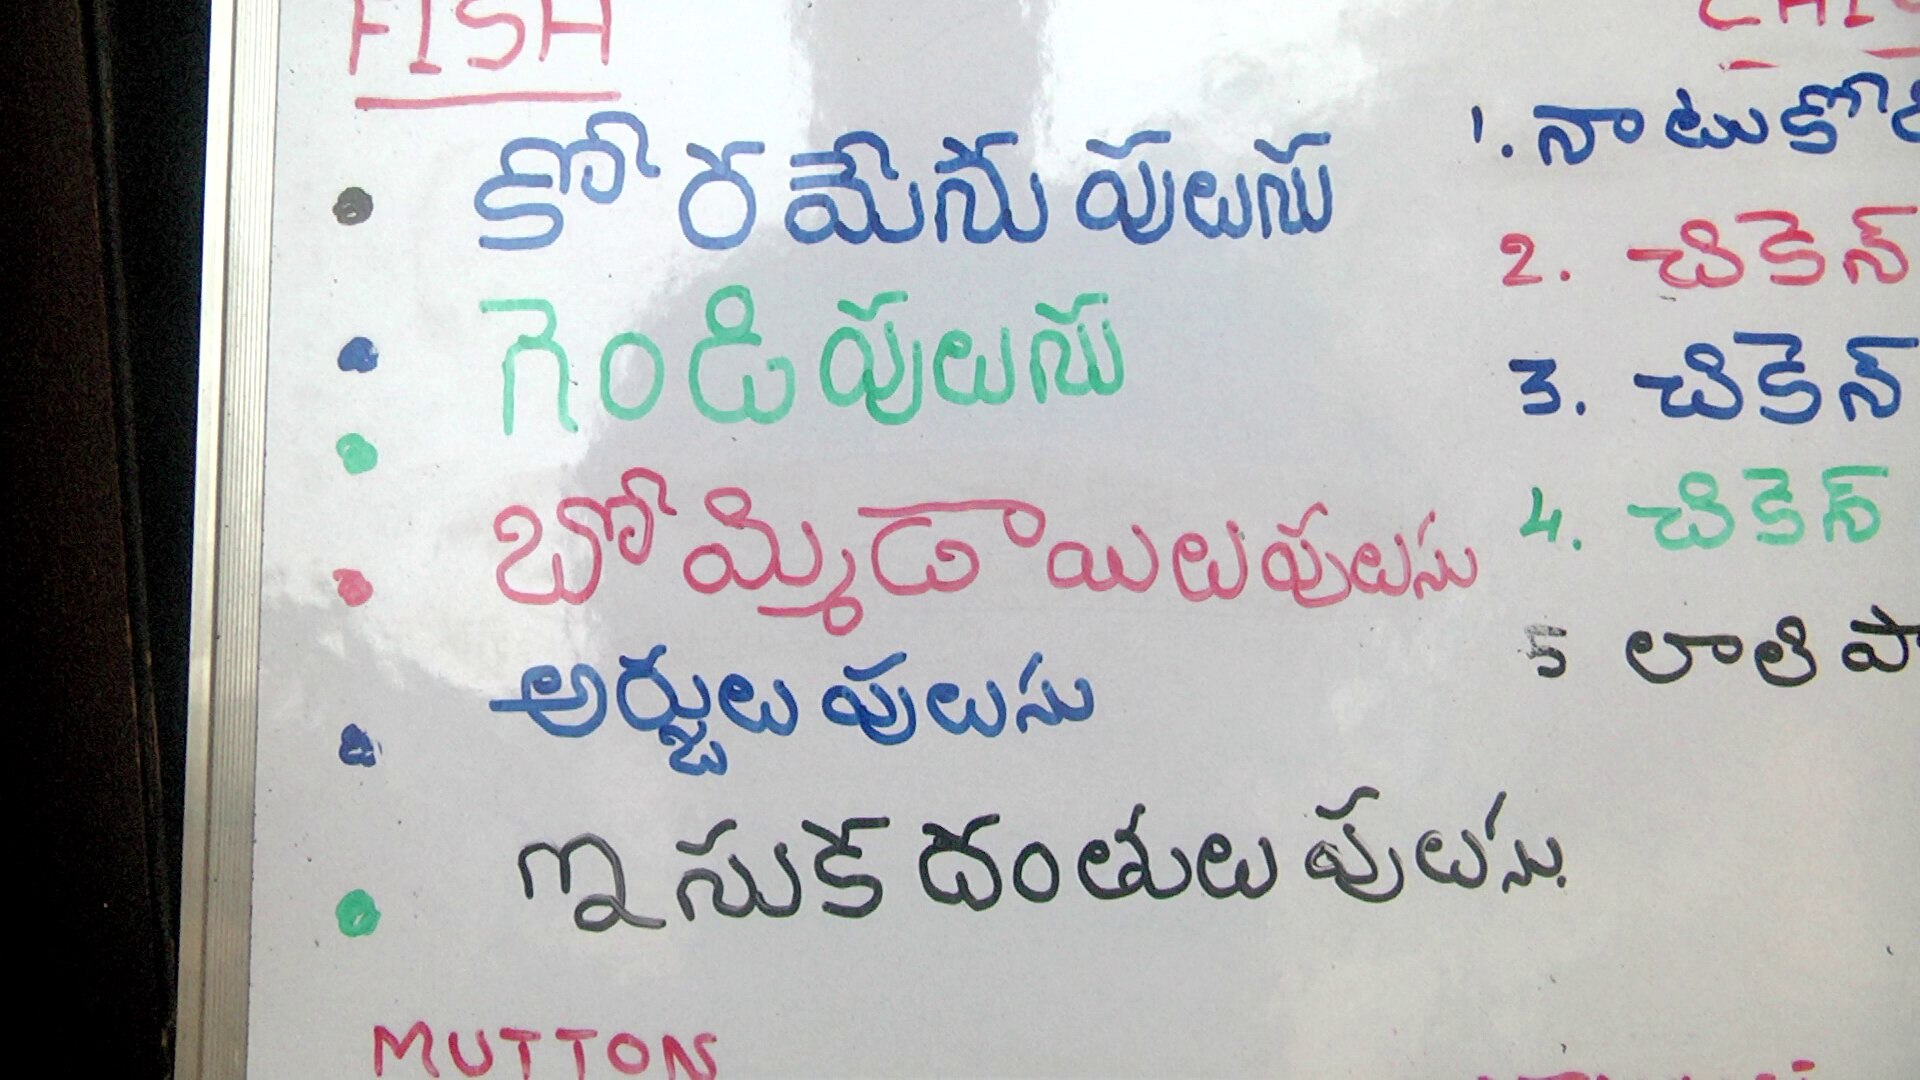 FISH
కోరమేను పులుసు
గెండి పులుసు
బోమ్మిడాయిలు పులుసు
అర్జులు పులుసు
ఇసుక దంతులు పులుసు
MUTTON
1. నాటుకో
2. చికెన్
3. చికెన్
4. చికెన్
5 లాలి పా